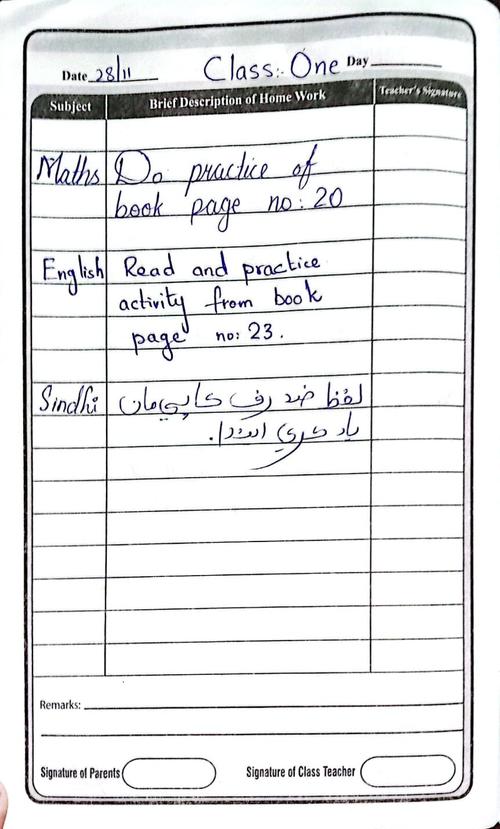 Date 28/11 Class:- One Day
Subject Brief Description of Home Work Teacher's Signature
Maths Do practice of
book page no: 20
English Read and practice
activity from book
page no: 23.
Sindhi لفظ ضد رف ڪاپي مان
ياد ڪري اچڻا.
Remarks:
Signature of Parents Signature of Class Teacher